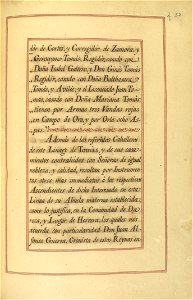 dor de Cortés, y Corregidor de Zamora, y
Geronymo Tomás, Regidór, casado con
Doña Isabel Gutierez, y Don Ginés Tomás
Regidór, casado con Doña Balthasara
Tomás, y Avilés; y el Licenciado Juan To-
más, casado con Doña Mariana Tomás:
tienen por Armas tres Vandas rojas
en Campo de Oro, y por Orla ocho As-
pas.
Además de los referidos Caballeros
de este Linage de Tomás, y de sus
casamientos contrahidos con Señoras de igual
nobleza, y calidad, resultan por Instrumen-
tos otros mas inmediatos à los respectivos
Ascendientes de dicho Interesado en esta
Linea de su Abuela materna establecidos,
como lo justifica, en la Comunidad de Daro-
ca, y Lugar de Herrera, los quales nos
acuerda, con particularidad, Don Juan Al-
fonso Guerra, Cronista de estos Reynos en